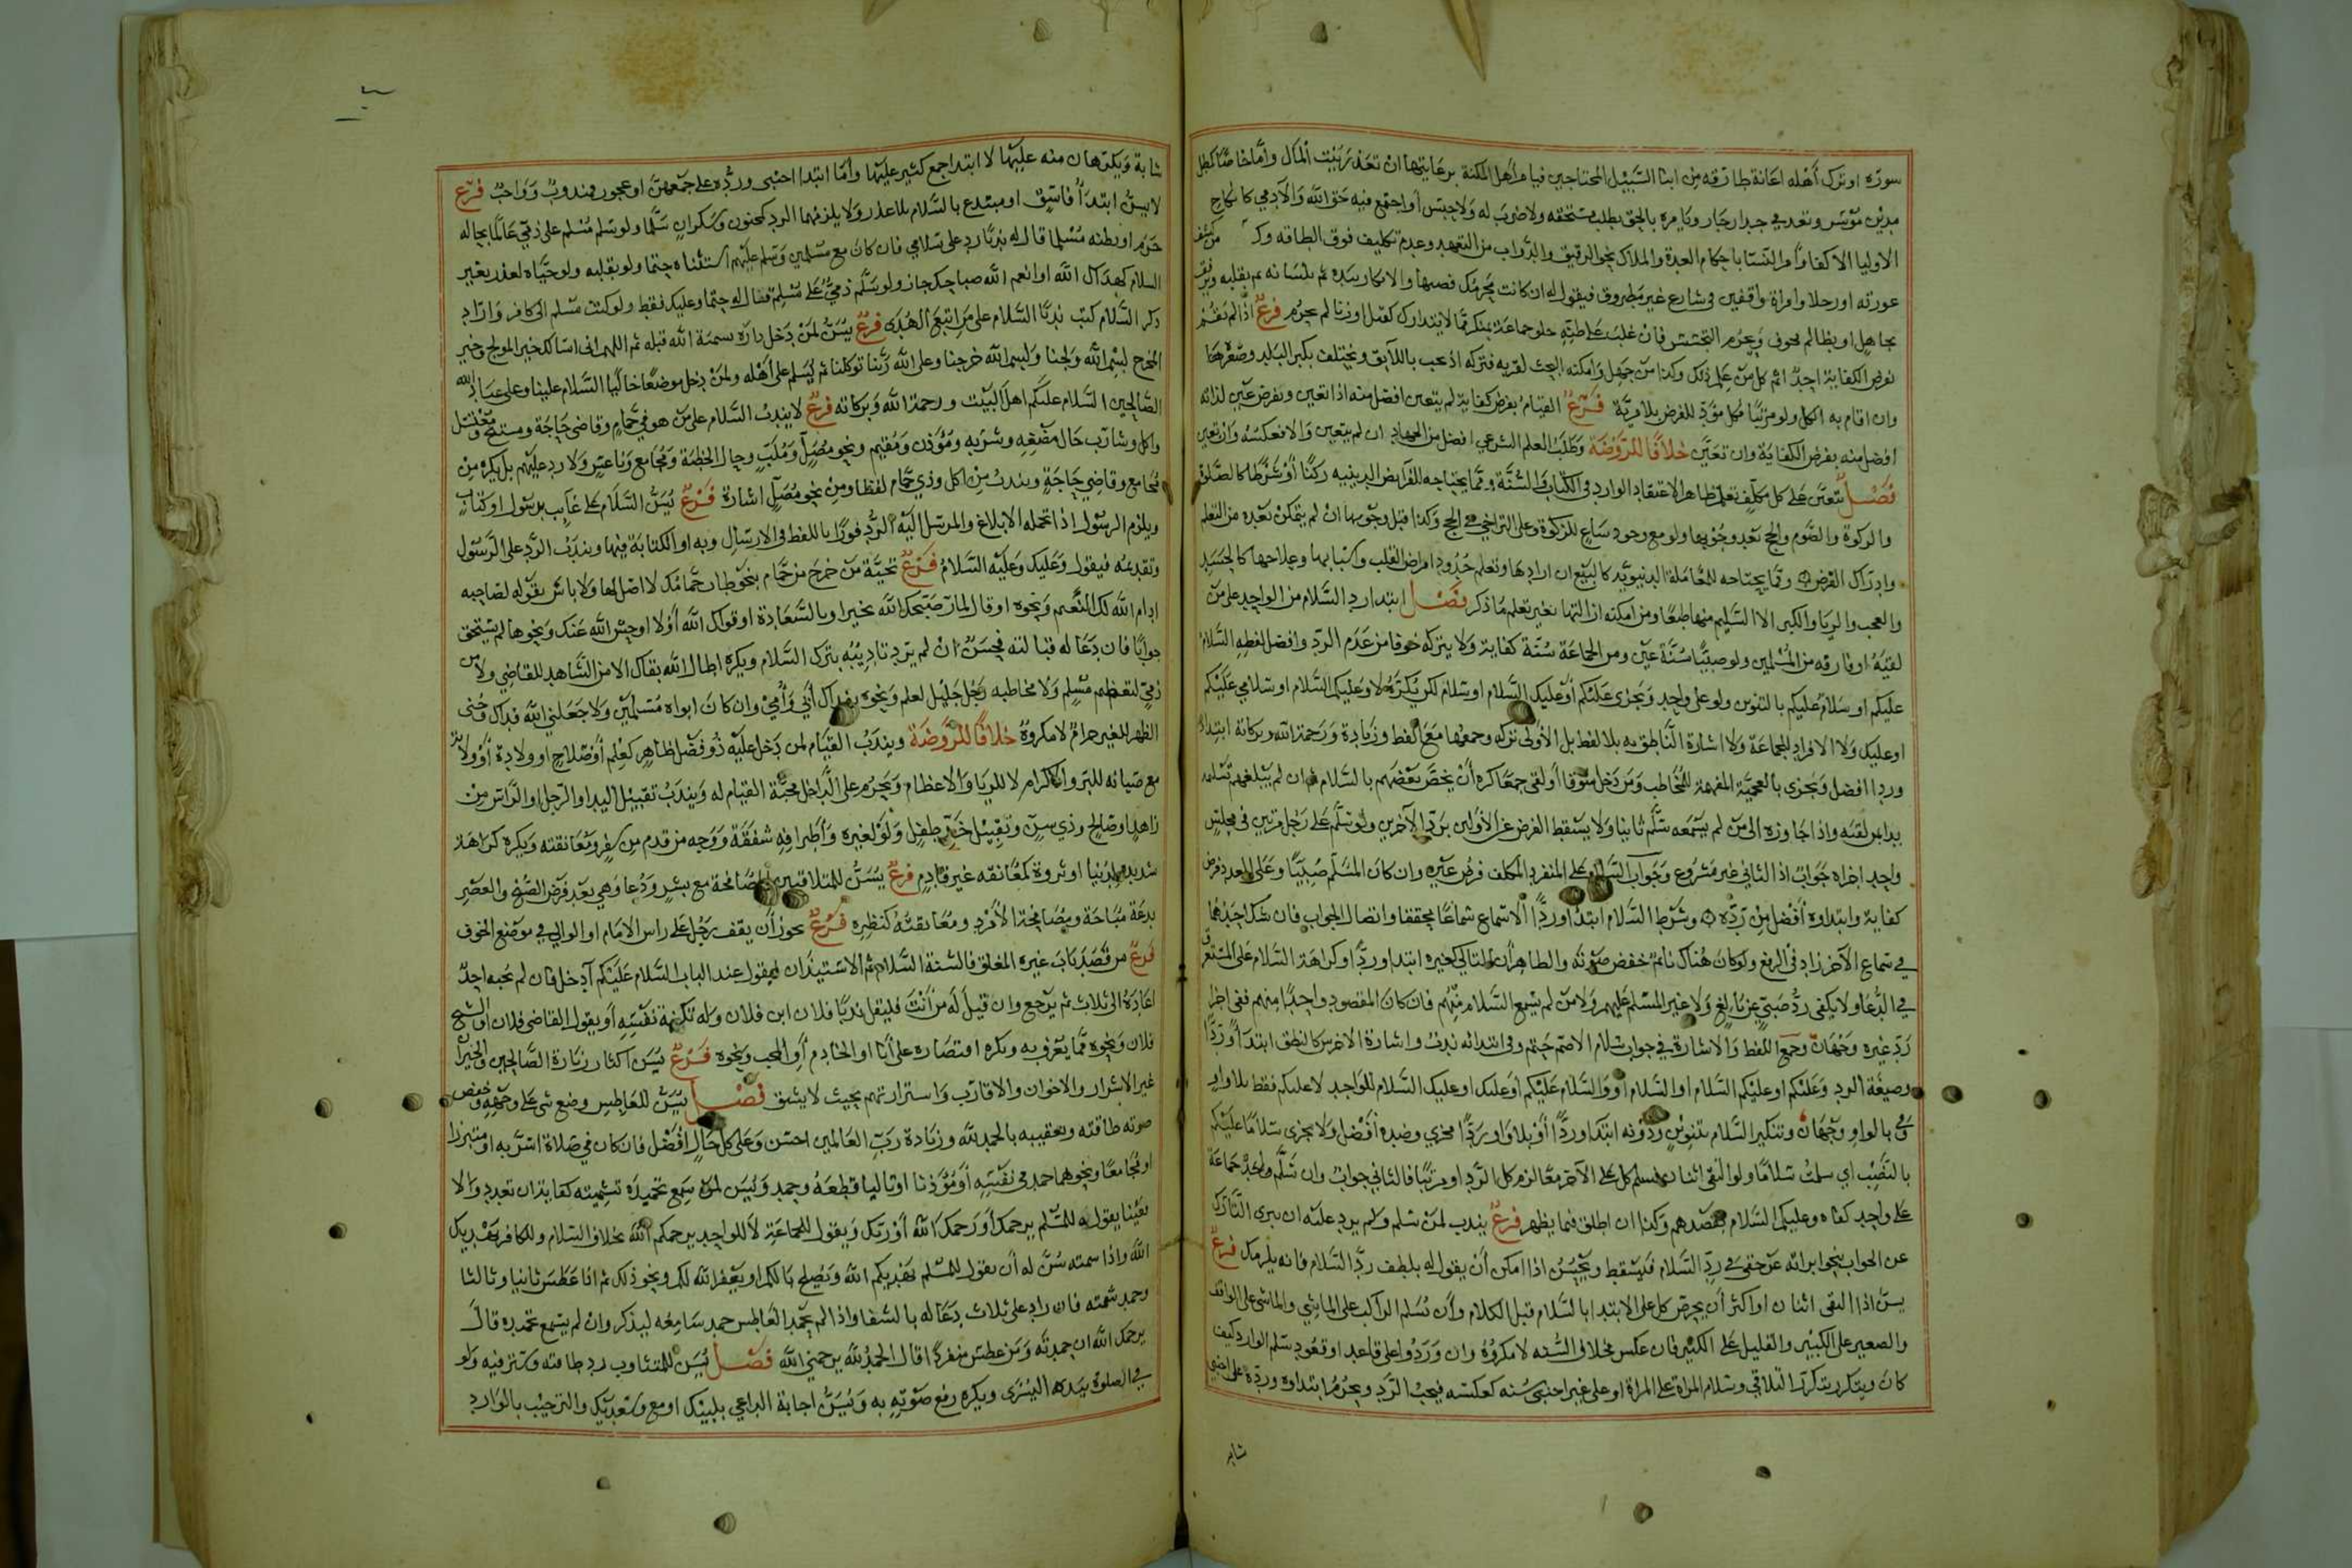 سوره او ترك أهله اعانة طارقه من ابنا السبيل المحتاجين فيامر أهل المكنة برعايتها ان تعذر بيت المال وامّا خاصّا كمطل
مدين موسر وتعد في جدار جار ويامره بالحق بطلب مستحقه ولا ضرب له ولا حبس أو اجتمع فيه حق الله والآدمي كانكاح
الاوليا الاكفا وامر النسا باحكام العدة والملاك بنحو الرقيق والدواب من التعهد وعدم تكليف فوق الطاقه
عورته او رجلا وامراة واقفين في شارع غير مطروق فيقول له ان كانت محرمك فصنها والانكار بيده ثم بلسانه ثم بقلبه ويرفق
بجاهل او بظالم مخوف ويحرم التجسس فان غلب على ظنه خلو جماعة بمنكر ممّا لا يتدارك كقتل او زنا لم يحرم فرع اذا لم يقم
بفرض الكفاية احد اثم كل من علم ذلك وكذا من جهل وامكنه البحث لقربه فتركه اذ يجب باللايق ويختلف بكبر البلد وصغرها
وان اقام به الكل ولو مرتبا فكل مؤد للفرض بلا مزية فرع القيام بفرض كفاية لم يتعين افضل منه اذا تعين وبفرض عين لذاته
افضل منه بفرض الكفاية وان تعين خلافا للروضة وطلب العلم الشرعي افضل من الجهاد ان لم يتعين والا فعكسه وان تعين
فصل يتعين على كل مكلف تعلم ظاهر الاعتقاد الوارد في الكتاب والسنة وممّا يحتاجه للفرايض الدينيه ركنا أو شرطا كالصلوة
والزكوة والصوم والحج بعد وجوبها ولو مع وجود ساع للزكوة وعلى التراخي في الحج وكذا قبل وجوبها ان لم يتمكن بعده من التعلم
وادراك الفرض وممّا يحتاجه للمعاملة الدنيويه كالبيع ان ارادها وتعلم حدود امراض القلب واسبابها وعلاجها كالحسد
والعجب والريا والكبر الا السليم منها طبعا ومن امكنه ازالتها بغير تعلم ما ذكر فصل ابتدا رد السلام من الواحد على من
لقيه او فارقه من المسلمين ولو صبيا سنة عين ومن الجماعة سنة كفاية ولا يتركه خوفا من عدم الرد وافضل لفظه السلام
عليكم او سلام عليكم بالتنوين ولو على واحد ويجزى عليكم أو عليك السلام او سلام لكن يكره لا وعليكم السلام او سلامي عليكم
او عليك ولا الافراد للجماعة ولا اشارة الناطق به بلا لفظ بل الأولى تركه وجمعها مع اللفظ وزيادة ورحمة الله وبركاته ابتداء
وردا افضل ويجزي بالعجمية المفهمة للمخاطب ومن دخل سوقا أو لقي جمعا كره أن يخص بعضهم بالسلام فان لم يبلغهم تسليمه
بدا بمن لقيه واذا جاوزه الى من لم يسمعه سلم ثانيا ولا يسقط الفرض عن الأولين برد الآخرين ولو سلم على رجل مرتين في مجلس
واحد اجزاه جواب اذ الثاني غير مشروع وجواب السلام على المنفرد المكلف فرض عين وان كان المسلم صبيا وعلى العدد فرض
كفاية وابتداوه أفضل من رده وشرط السلام ابتدا وردا الاستماع سماعا محققا واتصال الجواب فان شك احدهما
في سماع الآخر زاد في الرفع ولو كان هناك نائم خفض صوته والظاهر أن التالي كغيره ابتدا وردا وكراهة السلام على المستغرق
في الدعا ولا يكفى رد صبي عن بالغ ولا غير المسلم عليهم ولا من لم يسمع السلام منهم فان كان المقصود واحدا منهم ففي اجزا
رد غيره وجهان وجمع اللفظ والاشارة في جواب سلام الاصم حتم وفي ابتدائه ندب واشارة الاخرس كالنطق ابتدا وردا
وصيغة الرد وعليكم او وعليكم السلام او السلام او والسلام عليكم او عليك او عليك السلام للواحد لا عليكم فقط بلا واو
وفي بالواو وجهان وتنكير السلام بتنوين ردونه ابتدا وردا أو بلا واو ردا مجزي وضده أفضل ولا يجزى سلاما عليكم
بالنصب اي سلمت سلاما ولو التقى اثنان فسلم كل على الآخر معا لزم كل الرد او مرتبا فالثاني جواب وان سلم واحد جماعة
على واحد كفاه وعليكم السلام بقصدهم وكذا ان اطلق فيما يظهر فرع يندب لمن سلم ولم يرد عليه ان يبرى التارك
عن الجواب بنحو ابراته عن حقي في رد السلام فيسقط ويحسن اذا امكن أن يقول له بلطف رد السلام فانه يلزمك فرع
يسن اذا التقى اثنان او اكثر أن يحرص كل على الابتدا بالسلام قبل الكلام وأن يسلم الراكب على الماشي والماشي على الواقف
والصغير على الكبير والقليل على الكثير فان عكس فخلاف السنه لا مكروه وان وردوا على قاعد او قعود سلم الوارد كيف
كان ويتكرر بتكرر التلاقي وسلام المراة على المراة او على غير اجنبي سنه كعكسه فيجب الرد ويحرم ابتداوه ورده على اجنبي
شابه
شابة ويكرهان منه عليها لا ابتدا جمع كثير عليها وأما ابتدا اجنبي ورده على جمعهن او عجوز فمندوب وواجب فرع
لا يسن ابتدأ فاسق او مبتدع بالسلام بلا عذر ولا يلزمهما الرد كمجنون وسكران سلما ولو سلم مسلم على ذمي عالما بحاله
حرم او يظنه مسلما قال له ندبا رد على سلامي فان كان مع مسلمين وسلم عليهم استثناه حتما ولو بقلبه ولو حياه لعذر بغير
السلام كهداك الله او انعم الله صباحك جاز ولو سلم ذمي على مسلم قال له حتما وعليك فقط ولو كتب مسلم الى كافر وازاد
ذكر السلام كتب ندبا السلام على من اتبع الهدى فرع يسن لمن دخل داره تسمية الله قبله ثم اللهم اني اسالك خير المولج وخير
المخرج لبسم الله ولجنا وبسم الله خرجنا وعلى الله ربنا توكلنا ثم يسلم على أهله ولمن دخل موضعا خاليا السلام علينا وعلى عباد الله
الصالحين السلام عليكم اهل البيت ورحمة الله وبركاته فرع لا يندب السلام على من هو في حمام وقاضي حاجة ومستنج ومغتسل
واكل وشارب حال مضغه وشربه ومؤذن ومقيم ونحو مصل وملب وحال الخطبة ومجامع وناعس ولا رد عليهم بل يكره من
مجامع وقاضي حاجة ويندب من اكل وذي حمام لفظا ومن نحو مصل اشارة فرع يسن السلام على غايب برسول او كتاب
ويلزم الرسول اذا تحمله الابلاغ والمرسل اليه الرد فورا باللفظ في الارسال وبه او الكتابة فيها ويندب الرد على الرسول
وتقديمه فيقول وعليك وعليه السلام فرع تحية من خرج من حمام بنحو طاب حمامك لا اصل لها ولا باس بقوله لصاحبه
ادام الله لك النعيم ونحوه او قال المار صبحك الله بخير او بالسعادة او قواك الله أو لا اوحش الله عنك ونحوها لم يستحق
جوابا فان دعا له قبالته فحسن ان لم يرد تاديبه بترك السلام ويكره اطال الله بقاك الا من الشاهد للقاضي ولا من
ذمي لتعظيم مسلم ولا مخاطبه رجل جليل لعلم ونحوه بفداك أبي وأمي وان كان ابواه مسلمين ولا جعلني الله فداك وحنى
الظهر للغير حرام لا مكروه خلافا للروضة ويندب القيام لمن دخل عليه ذو فضل ظاهر كعلم أو صلاح او ولادة أو ولاية
مع صيانه للبر والاكرام لا للريا والاعظام ويحرم على الداخل محبة القيام له ويندب تقبيل اليد او الرجل او الراس من
زاهد او صالح وذي سن وتقبيل خد طفل ولو لغيره وأطرافه شفقة ووجه من قدم من سفر ومعانقته ويكره كراهة
شديده لدنيا او ثروة كمعانقه غير قادم فرع يسن للمتلاقيين المصافحة مع بشر ودعا وهي بعد فرض الصبح والعصر
بدعة مباحة ومصافحة الأمرد ومعانقته كنظره فرع يجوز أن يقف رجل على راس الامام او الوالي في موضع الخوف
فرع من قصد باب غيره المغلق فالسنة السلام ثم الاستيذان ليقول عند الباب السلام عليكم آدخل فان لم يجبه احد
اعاده الى ثلاث ثم يرجع وان قيل له من أنت فليقل ندبا فلان ابن فلان وله تكنية نفسه أو يقول القاضي فلان أو الشيخ
فلان ونحوه ممّا يعرف به ويكره اقتصاره على أنا او الخادم أو المحب ونحوه فرع يسن اكثار زيارة الصالحين والجيران
غير الاشرار والاخوان والاقارب واستزارتهم بحيث لا يشق فصل يسن للعاطس وضع شي على وجهه وخفض
صوته طاقته وتعقيبه بالحمد لله وزيادة رب العالمين احسن وعلى كل حال أفضل فان كان في صلاة اسر به او متبرزا
او مجامعا ونحوهما حمد في نفسه أو مؤذنا او تاليا قطعه وحمد ويسن لمن سمع تحميده تشميته كفاية ان تعدد والا
عينا يقول للمسلم يرحمك أو رحمك الله أو ربك ويقول للجماعة لا للواحد يرحمكم الله بخلاف السلام وللكافر يهديك
الله واذا سمته سن له أن يقول للمسلم يهديكم الله ويصلح بالكم او يغفر الله لكم ونحو ذلك ثم اذا عطس ثانيا وثالثا
وحمد شمته فان زاد على ثلاث دعا له بالشفا واذا لم يحمد العاطس حمد سامعه ليذكر وان لم يسمع تحمده قال
يرحمك الله ان حمدته ومن عطس منفردا قال الحمد لله يرحمني الله فصل يسن للمتثاوب رد طاقته وستر فيه ولو
في الصلوة بيده اليسرى ويكره رفع صوته به ويسن اجابة الداعي بلبيك او مع وسعديك والترحيب بالوارد